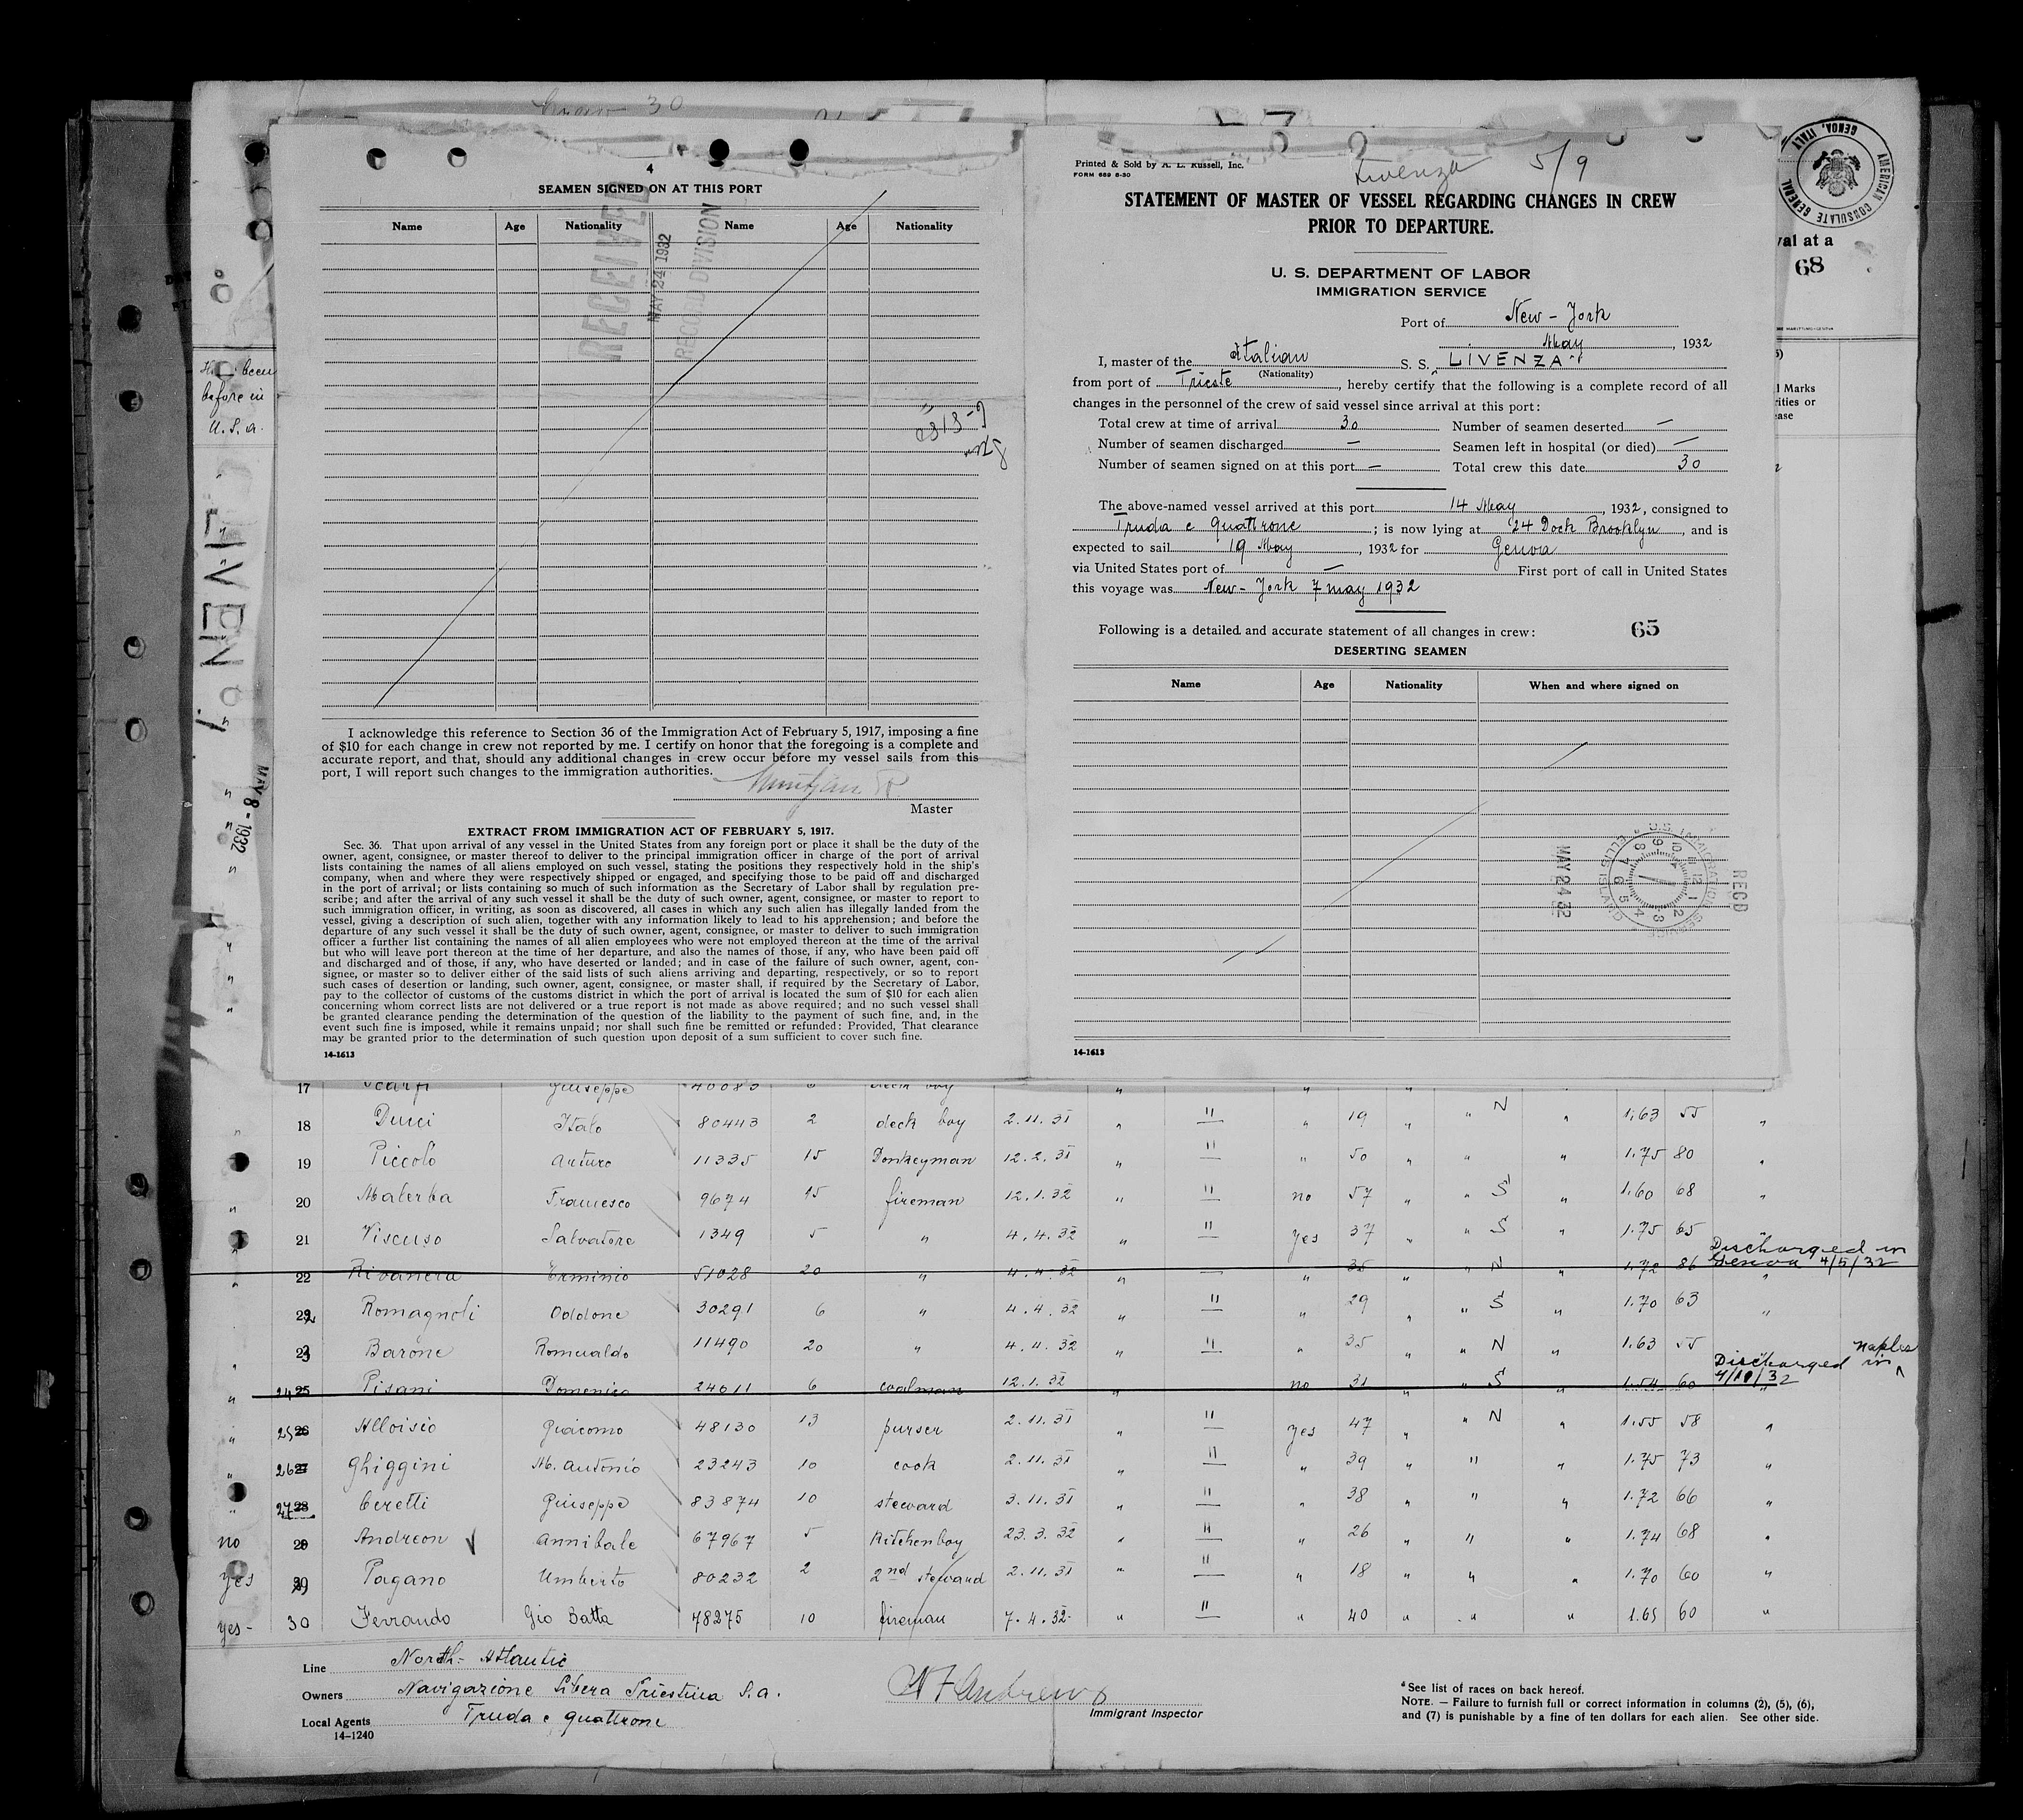 Crew 30
4
SEAMEN SIGNED ON AT THIS PORT
Name Age Nationality Name Age Nationality
RECEIVED
MAY 24 1932
RECORD DIVISION
I acknowledge this reference to Section 36 of the Immigration Act of February 5, 1917, imposing a fine
of $10 for each change in crew not reported by me. I certify on honor that the foregoing is a complete and
accurate report, and that, should any additional changes in crew occur before my vessel sails from this
port, I will report such changes to the immigration authorities.
Master
EXTRACT FROM IMMIGRATION ACT OF FEBRUARY 5, 1917.
Sec. 36. That upon arrival of any vessel in the United States from any foreign port or place it shall be the duty of the
owner, agent, consignee, or master thereof to deliver to the principal immigration officer in charge of the port of arrival
lists containing the names of all aliens employed on such vessel, stating the positions they respectively hold in the ship's
company, when and where they were respectively shipped or engaged, and specifying those to be paid off and discharged
in the port of arrival; or lists containing so much of such information as the Secretary of Labor shall by regulation pre-
scribe; and after the arrival of any such vessel it shall be the duty of such owner, agent, consignee, or master to report to
such immigration officer, in writing, as soon as discovered, all cases in which any such alien has illegally landed from the
vessel, giving a description of such alien, together with any information likely to lead to his apprehension; and before the
departure of any such vessel it shall be the duty of such owner, agent, consignee, or master to deliver to such immigration
officer a further list containing the names of all alien employees who were not employed thereon at the time of the arrival
but who will leave port thereon at the time of her departure, and also the names of those, if any, who have been paid off
and discharged and of those, if any, who have deserted or landed; and in case of the failure of such owner, agent, con-
signee, or master so to deliver either of the said lists of such aliens arriving and departing, respectively, or so to report
such cases of desertion or landing, such owner, agent, consignee, or master shall, if required by the Secretary of Labor,
pay to the collector of customs of the customs district in which the port of arrival is located the sum of $10 for each alien
concerning whom correct lists are not delivered or a true report is not made as above required; and no such vessel shall
be granted clearance pending the determination of the question of the liability to the payment of such fine, and, in the
event such fine is imposed, while it remains unpaid; nor shall such fine be remitted or refunded: Provided, That clearance
may be granted prior to the determination of such question upon deposit of a sum sufficient to cover such fine.
14-1613
Printed & Sold by A. L. Russell, Inc.
FORM 689 6-30
Livenza 5/9
STATEMENT OF MASTER OF VESSEL REGARDING CHANGES IN CREW
PRIOR TO DEPARTURE.
U. S. DEPARTMENT OF LABOR
IMMIGRATION SERVICE
Port of New-York
May, 1932
I, master of the Italian S. S. "LIVENZA"
(Nationality)
from port of Trieste, hereby certify that the following is a complete record of all
changes in the personnel of the crew of said vessel since arrival at this port:
Total crew at time of arrival 30 Number of seamen deserted —
Number of seamen discharged — Seamen left in hospital (or died) —
Number of seamen signed on at this port — Total crew this date 30
The above-named vessel arrived at this port 14 May, 1932, consigned to
Truda e Quattrone; is now lying at 24 Dock Brooklyn, and is
expected to sail 19 May, 1932 for Genova
via United States port of — First port of call in United States
this voyage was New-York 7 may 1932
Following is a detailed and accurate statement of all changes in crew: 65
DESERTING SEAMEN
Name Age Nationality When and where signed on
U.S. IMMIGRATION SERVICE ELLIS ISLAND
REC'D
MAY 24 32
14-1613
AMERICAN CONSULATE GENERAL GENOA, ITALY
val at a
68
l Marks
rities or
ease
been
before in
U.S.A.
LIVENZA
MAY 8 - 1932
17 Scarfi Giuseppe 40083 6 deck boy
18 Ducci Italo 80443 2 deck boy 2.11.31 " " " 19 " " N " 1.63 55 "
19 Piccolo Arturo 11335 15 Donkeyman 12.2.31 " " " 50 " " " 1.75 80 "
20 Malerba Francesco 9674 15 fireman 12.1.32 " " no 57 " " S " 1.60 68 "
21 Viscuso Salvatore 1349 5 " 4.4.32 " " yes 37 " " S " 1.75 65 "
22 Rivanera Erminio 51028 20 " 4.4.32 " " 35 " N " 1.72 86 Discharged in Genoa 4/5/32
22 Romagnoli Oddone 30291 6 " 4.4.32 " " " 29 " " S " 1.70 63 "
23 Barone Romualdo 11490 20 " 4.11.32 " " " 35 " " N " 1.63 55 "
24 25 Pisani Domenico 24011 6 coalman 12.1.32 " no 31 " " S " 1.54 60 Discharged in Naples 4/11/32
25 26 Alloisio Giacomo 48130 13 purser 2.11.31 " " yes 47 " " N " 1.55 58 "
26 27 Ghiggini M. Antonio 23243 10 cook 2.11.31 " " " 39 " " " 1.75 73 "
27 28 Ceretti Giuseppe 83874 10 steward 3.11.31 " " " 38 " " " 1.72 66 "
no 29 Andreon Annibale 67967 5 Kitchenboy 23.3.32 " " " 26 " " " 1.74 68 "
yes 30 Pagano Umberto 80232 2 2nd steward 2.11.31 " " " 18 " " " 1.70 60 "
yes - 30 Ferrando Gio Batta 78275 10 fireman 7.4.32 " " " 40 " " " 1.65 60 "
Line North-Atlantic
Owners Navigazione Libera Triestina S.A.
Local Agents Truda e Quattrone
14-1240
Andrews
Immigrant Inspector
*See list of races on back hereof.
NOTE. — Failure to furnish full or correct information in columns (2), (5), (6),
and (7) is punishable by a fine of ten dollars for each alien. See other side.